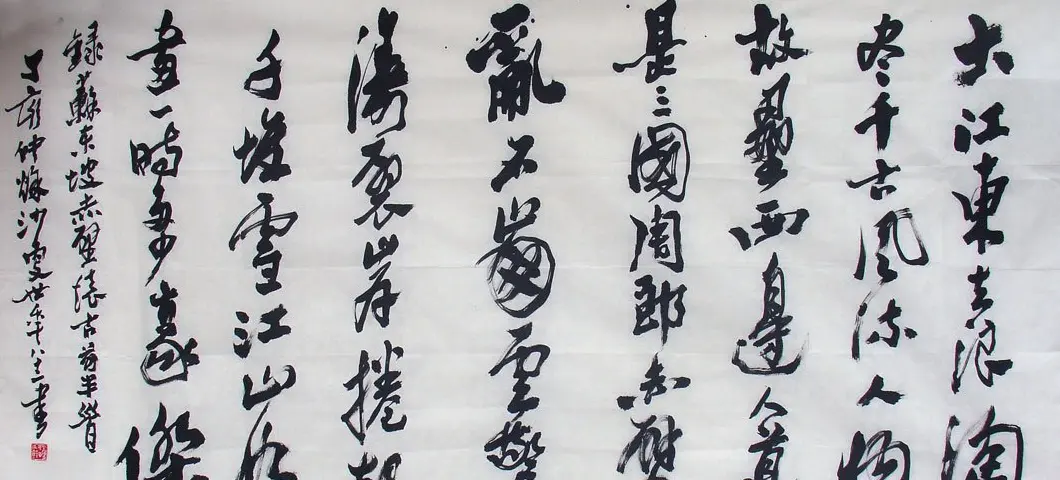 大江東去浪淘
盡千古風流人物
故壘西邊人道
是三國周郎赤壁
亂石崩雲驚
濤裂岸捲起
千堆雪江山如
畫一時多少豪傑
錄蘇东坡赤壁懷古半首
丁亥仲秋沙年八十一書